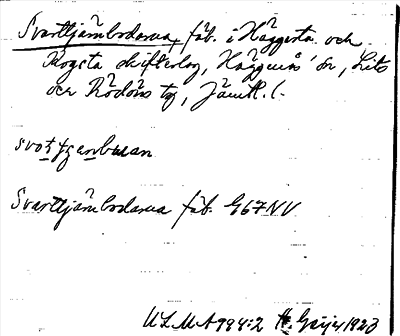 Svarttjämbodarna, fäb. i Häggsta och
Rogsta skifteslag, Häggenås' sn, Lits
och Rödöns tg, Jämtl. l.
svottjenbuan
Svarttjämbodarna fäb. G67NV
ULMA 994:2 H. Geijer 1923